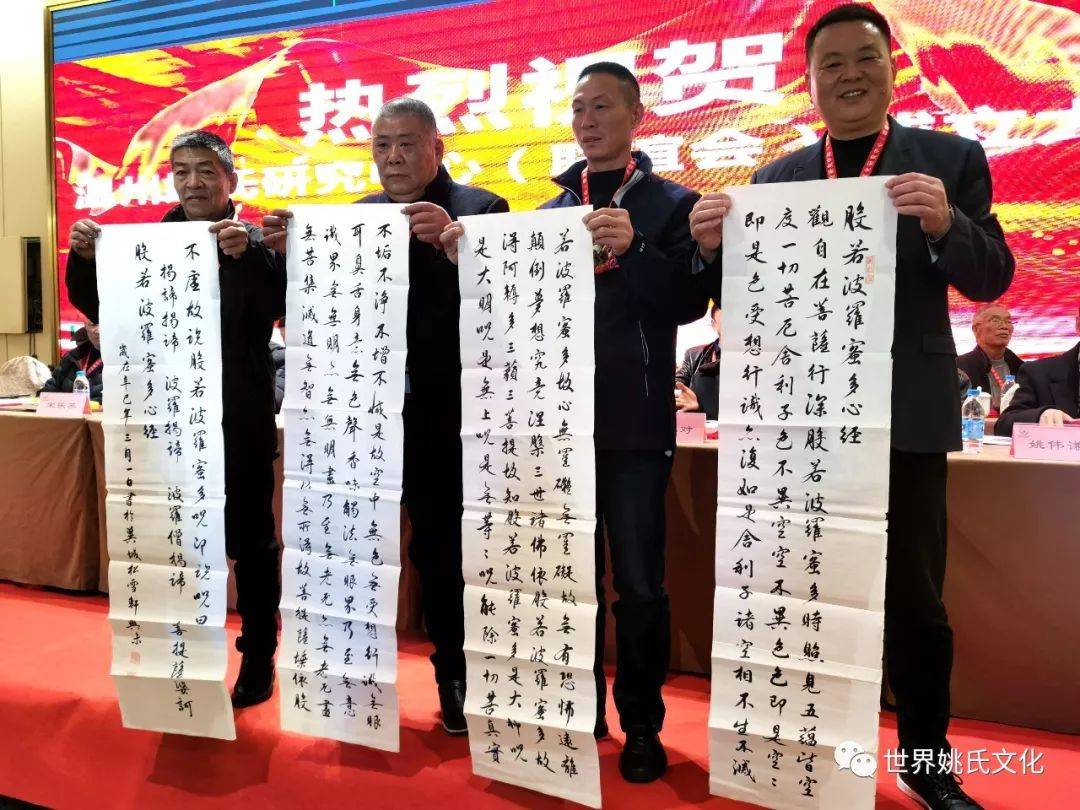 热烈祝贺
研究中心（联谊会）
般若波羅蜜多心經
觀自在菩薩行深般若波羅蜜多時照見五蘊皆空
度一切苦厄舍利子色不異空空不異色色即是空〻
即是色受想行識亦復如是舍利子諸空相不生不滅
若波羅蜜多故心無罣礙無罣礙故無有恐怖遠離
顛倒夢想究竟涅槃三世諸佛依般若波羅蜜多故
得阿耨多三藐三菩提故知般若波羅蜜多是大神咒
是大明咒是無上咒是無等〻咒能除一切苦真實
不垢不淨不增不減是故空中無色無受想行識無眼
耳鼻舌身意無色聲香味觸法無眼界乃至無意
識界無無明亦無無明盡乃至無老死亦無老死盡
無苦集滅道無智亦無得以無所得故菩提薩埵依般
不虛故說般若波羅蜜多咒即說咒曰
揭諦揭諦 波羅揭諦 波羅僧揭諦 菩提薩婆訶
般若波羅蜜多心經
歲在辛巳年三月一日書於吳城松雪軒
对
姚伟
世界姚氏文化